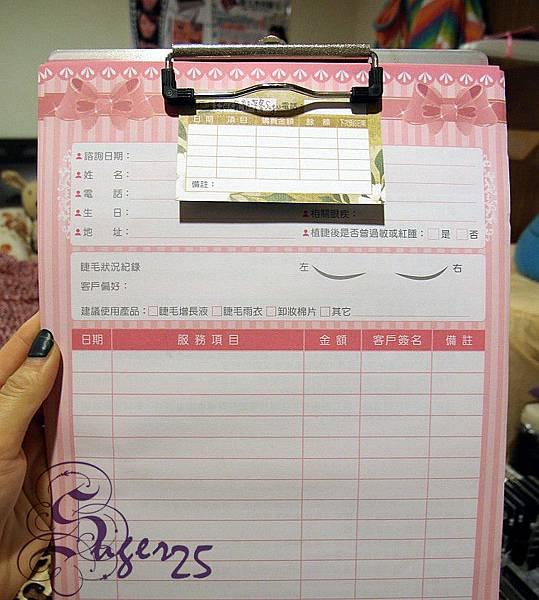 電話
日期 項目 購買金額 餘額 下次預約日期
備註：
諮詢日期：
姓 名：
電 話：
生 日：
相關眼疾：
地 址：
植睫後是否曾過敏或紅腫：□是 □否
睫毛狀況紀錄
左 右
客戶偏好：
建議使用產品：□睫毛增長液 □睫毛雨衣 □卸妝棉片 □其它
日期 服務項目 金額 客戶簽名 備註
Suger25